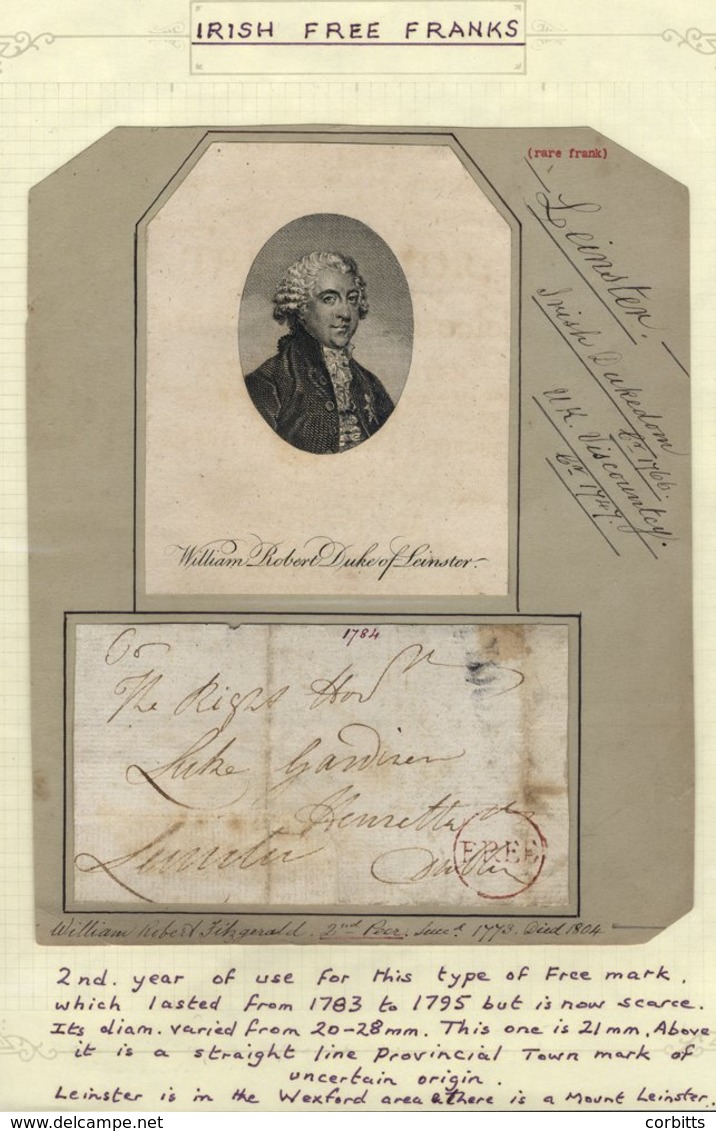 IRISH FREE FRANKS
(rare frank)
Leinster.
Irish Dukedom
Cr. 1766.
U.K. Viscountcy.
Cr. 1747.
William Robert Duke of Leinster.
1784
To
The Right Honble
Luke Gardiner
Henrietta St
Dublin
Leinster
FREE
William Robert Fitzgerald. 2nd Peer. Succd. 1773. Died 1804
2nd. year of use for this type of Free mark,
which lasted from 1783 to 1795 but is now scarce.
Its diam. varied from 20-28mm. This one is 21mm. Above
it is a straight line Provincial Town mark of
uncertain origin.
Leinster is in the Wexford area & there is a Mount Leinster.
corbitts